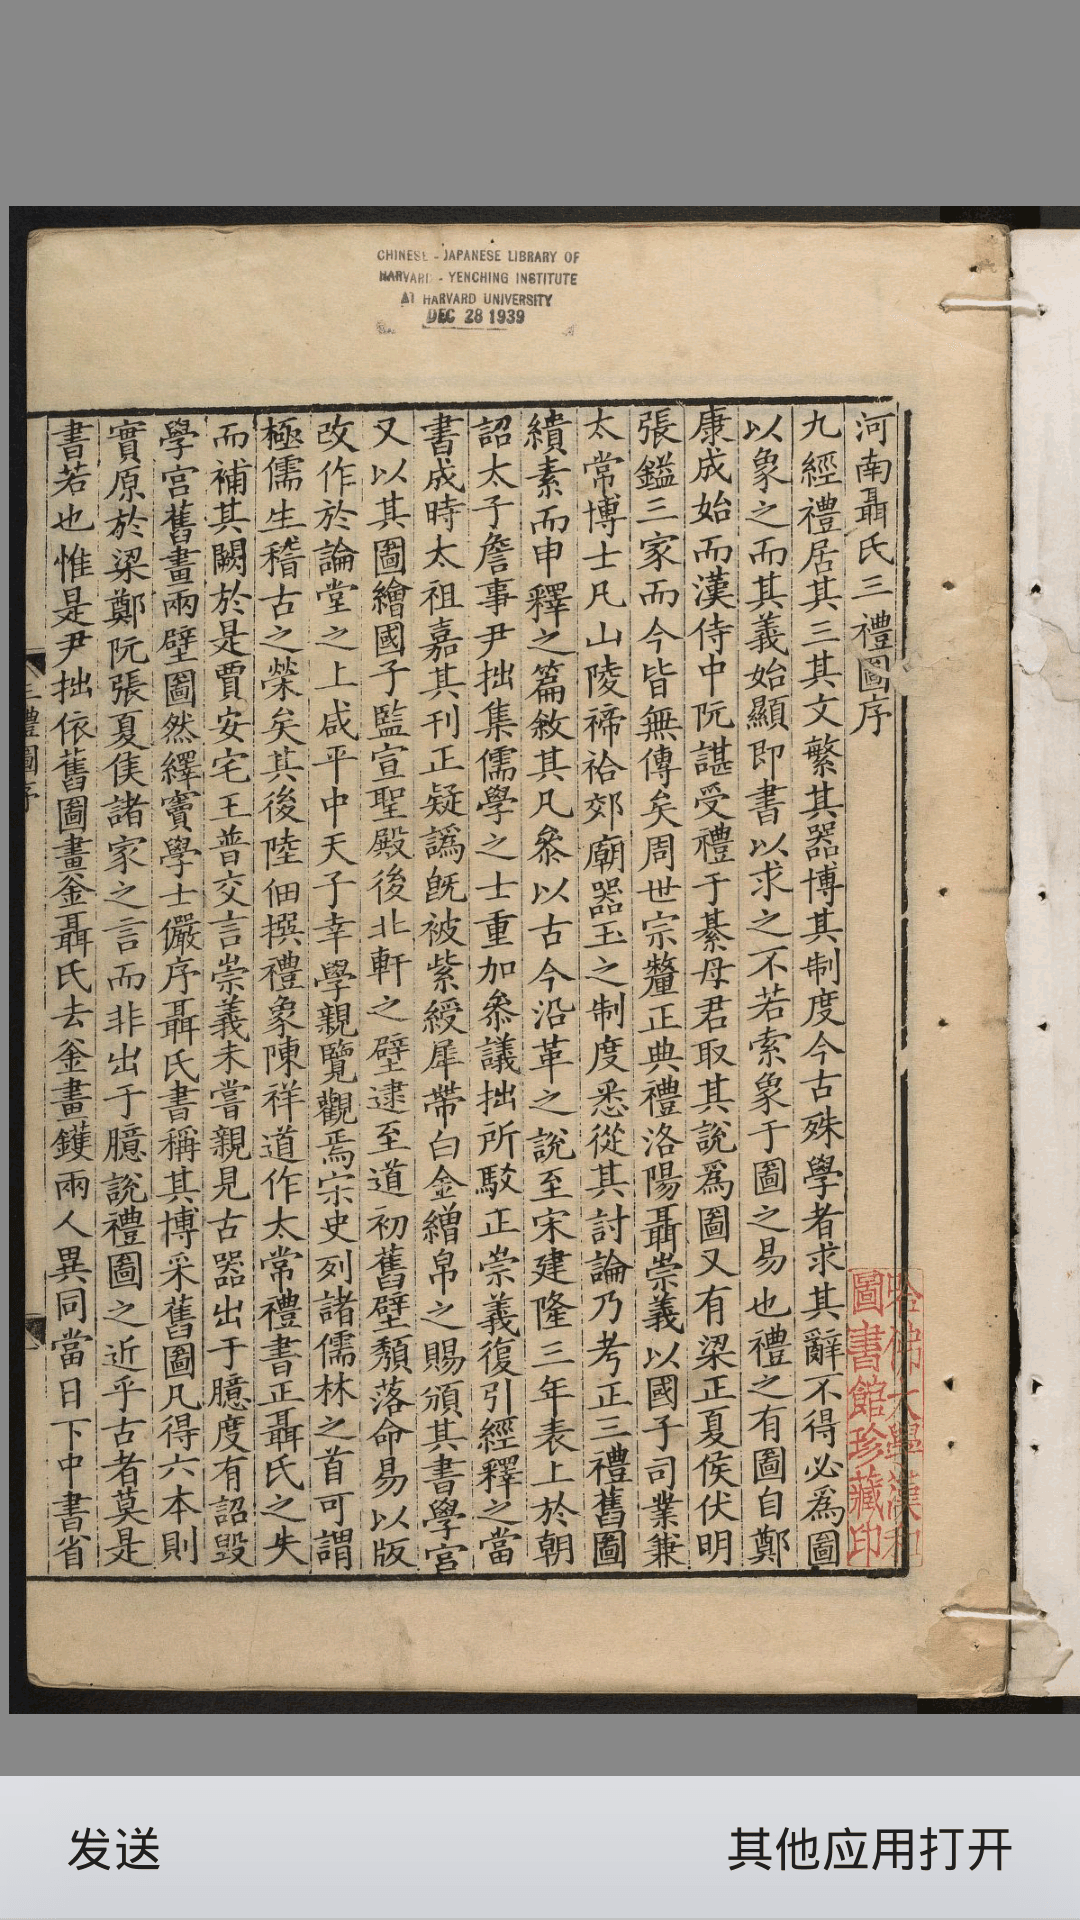 CHINESE - JAPANESE LIBRARY OF
HARVARD - YENCHING INSTITUTE
AT HARVARD UNIVERSITY
DEC 28 1939
河南聶氏三禮圖序
九經禮居其三其文繁其器博其制度今古殊學者求其辭不得必爲圖
以象之而其義始顯即書以求之不若索象于圖之易也禮之有圖自鄭
康成始而漢侍中阮諶受禮于綦母君取其說爲圖又有梁正夏侯伏明
張鎰三家而今皆無傳矣周世宗釐正典禮洛陽聶崇義以國子司業兼
太常博士凡山陵禘祫郊廟器玉之制度悉從其討論乃考正三禮舊圖
繢素而申釋之篇敘其凡叅以古今沿革之說至宋建隆三年表上於朝
詔太子詹事尹拙集儒學之士重加叅議拙所駁正崇義復引經釋之當
書成時太祖嘉其刊正疑譌旣被紫綬犀帶白金繒帛之賜頒其書學宮
又以其圖繪國子監宣聖殿後北軒之壁逮至道初舊壁頽落命易以版
改作於論堂之上咸平中天子幸學親覽觀焉宋史列諸儒林之首可謂
極儒生稽古之榮矣其後陸佃撰禮象陳祥道作太常禮書正聶氏之失
而補其闕於是賈安宅王普交言崇義未嘗親見古器出于臆度有詔毀
學宮舊畫兩壁圖然繹竇學士儼序聶氏書稱其博采舊圖凡得六本則
實原於梁鄭阮張夏侯諸家之言而非出于臆說禮圖之近乎古者莫是
書若也惟是尹拙依舊圖畫釜聶氏去釜畫鑊兩人異同當日下中書省
三禮圖序
哈佛大學漢和
圖書館珍藏印
发送
其他应用打开